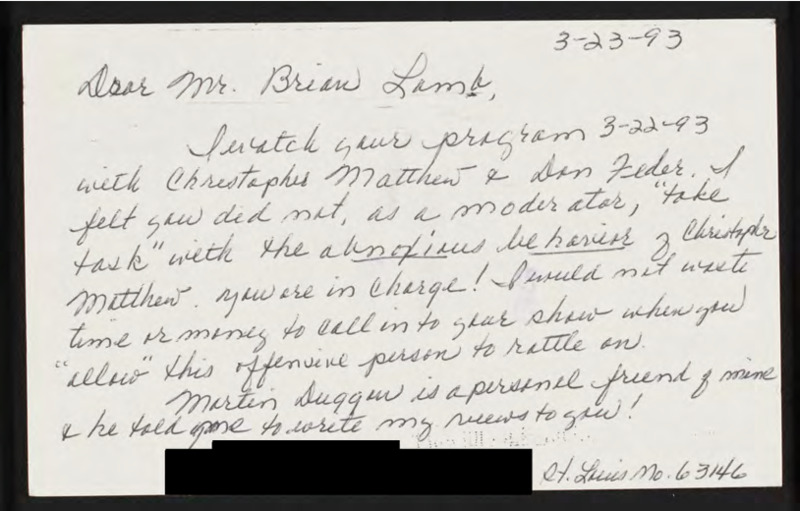 3-23-93
Dear Mr. Brian Lamb,
I watch your program 3-22-93
with Christopher Matthew & Don Feder. I
felt you did not, as a moderator, "take
task" with the abnoxious behavior of Christopher
Matthew. You are in charge! I would not waste
time or money to call in to your show when you
"allow" this offensive person to rattle on.
Martin Duggan is a personal friend of mine
& he told me to write my views to you!
St. Louis Mo. 63146